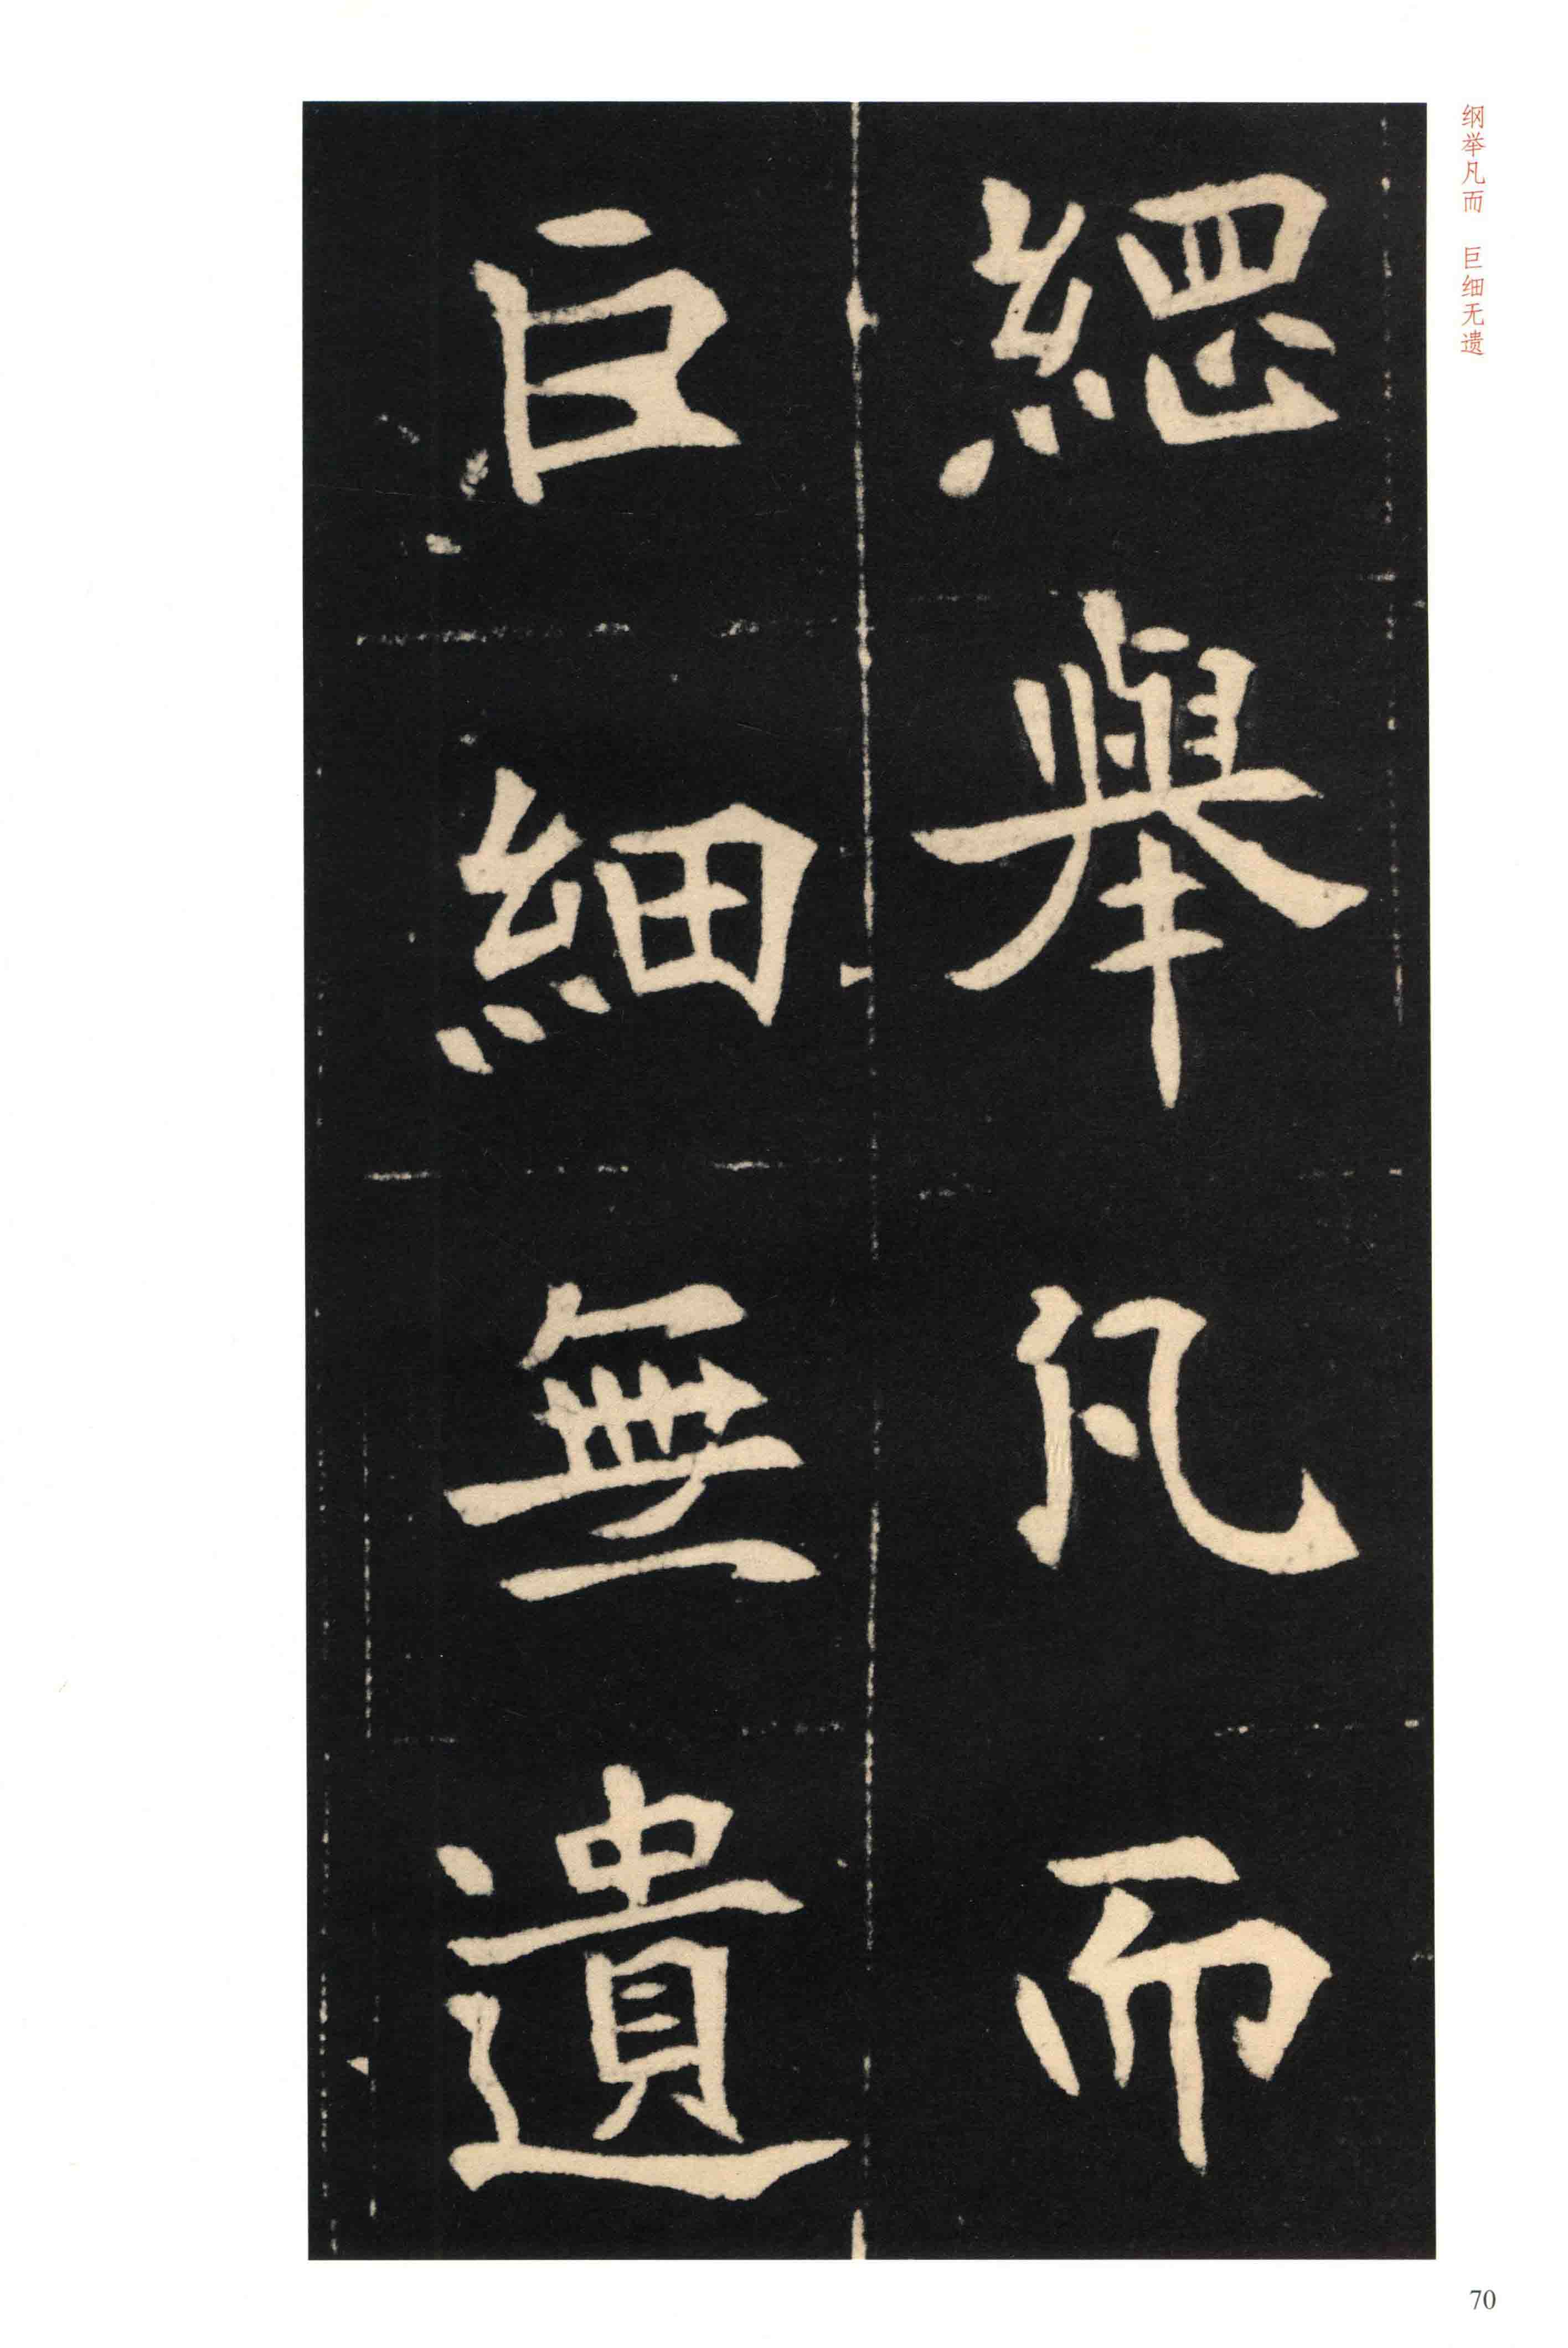 纲举凡而 巨细无遗
綱舉凡而
巨細無遺
70